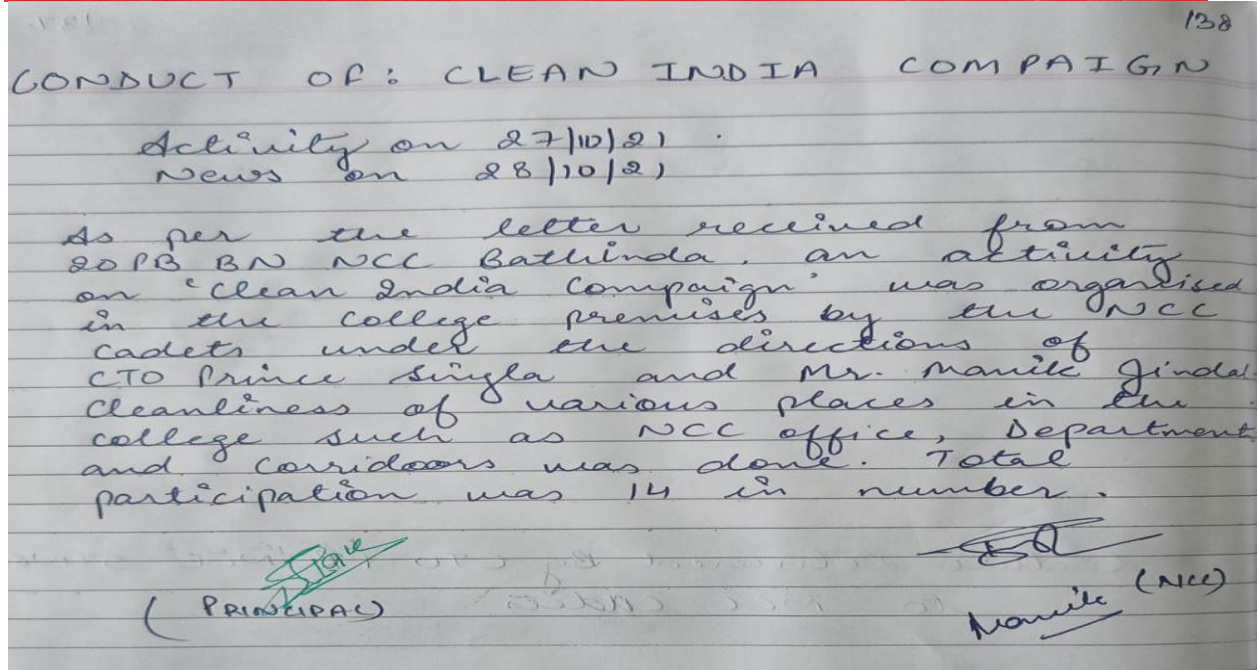 138
CONDUCT OF: CLEAN INDIA COMPAIGN
Activity on 27/10/21
News on 28/10/21
As per the letter received from
20 PB BN NCC Bathinda, an activity
on 'Clean India Compaign' was organised
in the college premises by the NCC
cadets under the directions of
CTO Prince Singla and Mr. Manik Jindal.
Cleanliness of various places in the
college such as NCC office, Department
and corridoors was done. Total
participation was 14 in number.
(PRINCIPAL)
(NCC)
Manik